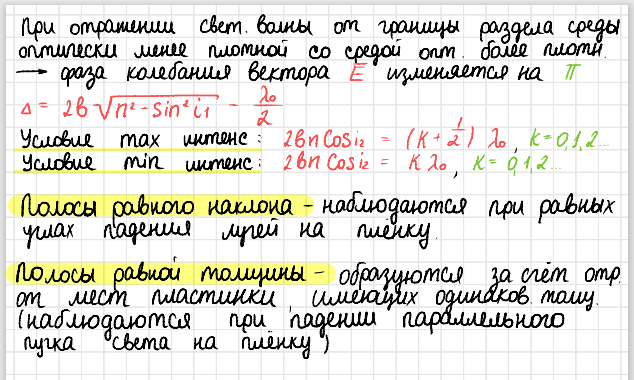 При отражении свет. волны от границы раздела среды
оптически менее плотной со средой опт. более плотн.
→ фаза колебания вектора E изменяется на π
Δ = 2b√(n² - sin² i₁) - λ₀/2
Условие max интенс: 2bn Cos i₂ = (K + 1/2) λ₀, K = 0,1,2...
Условие min интенс: 2bn Cos i₂ = K λ₀, K = 0,1,2...
Полосы равного наклона - наблюдаются при равных
углах падения лучей на плёнку.
Полосы равной толщины - образуются за счёт отр.
от мест пластинки, имеющих одинаков. толщ.
(наблюдаются при падении параллельного
пучка света на плёнку)